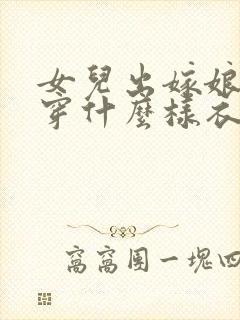 女兒出嫁娘
穿什麼樣衣
窩窩團一塊四